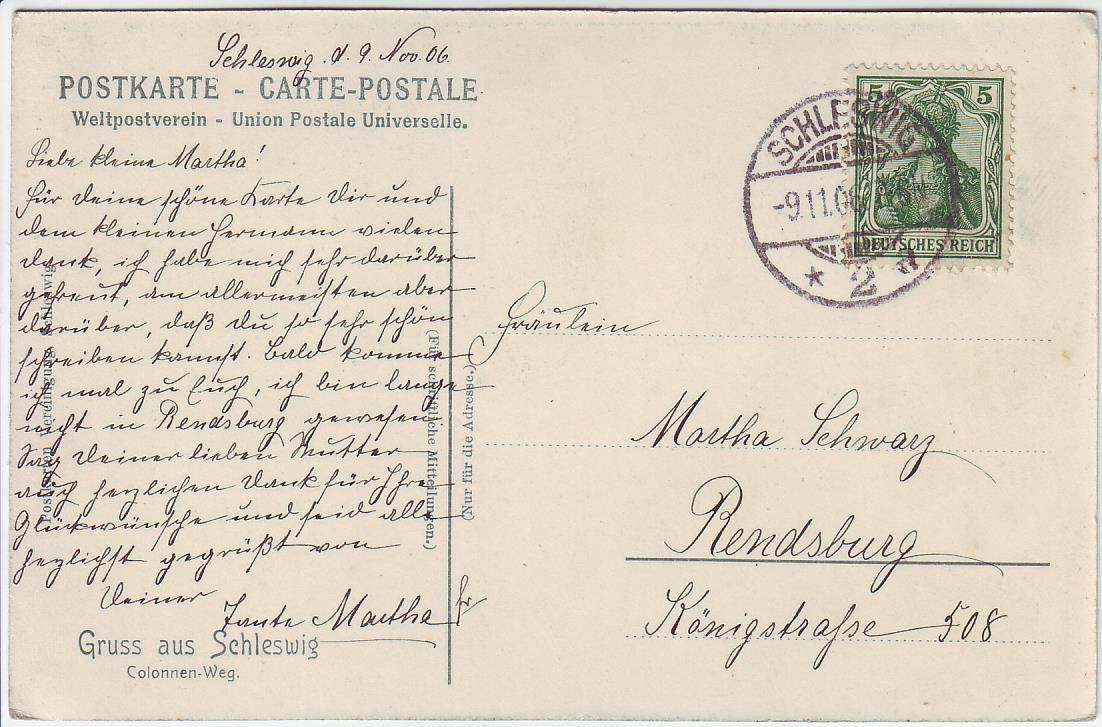 Schleswig. d. 9. Nov. 06.
POSTKARTE - CARTE-POSTALE
Weltpostverein - Union Postale Universelle.
Liebe kleine Martha!
Für Deine schöne Karte Dir und
dem kleinen Hermann vielen
Dank, ich habe mich sehr darüber
gefreut, am allermeisten aber
darüber, daß du so sehr schön
schreiben kannst. Bald komme
ich mal zu Euch, ich bin lange
nicht in Rendsburg gewesen
Sag Deiner lieben Mutter
auch herzlichen Dank für Ihre
Glückwünsche und seid alle
herzlichst gegrüßt von
Deiner
Tante Martha
Gruss aus Schleswig
Colonnen-Weg.
Postkarten Vereinigung Schleswig
(Für schriftliche Mitteilungen.)
(Nur für die Adresse.)
SCHLESWIG
-9.11.06
* 2 d
5 5
DEUTSCHES REICH
Fräulein
Martha Schwarz
Rendsburg
Königstraße 508